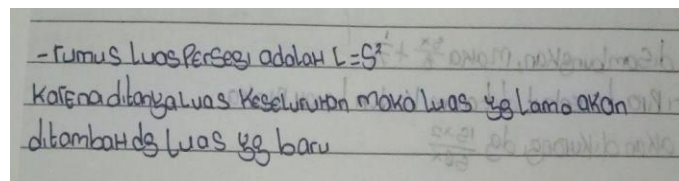 - rumus luas Persegi adalah L = S²
Karena ditanya Luas Keseluruhan maka luas yg lama akan
ditambah dg luas yg baru